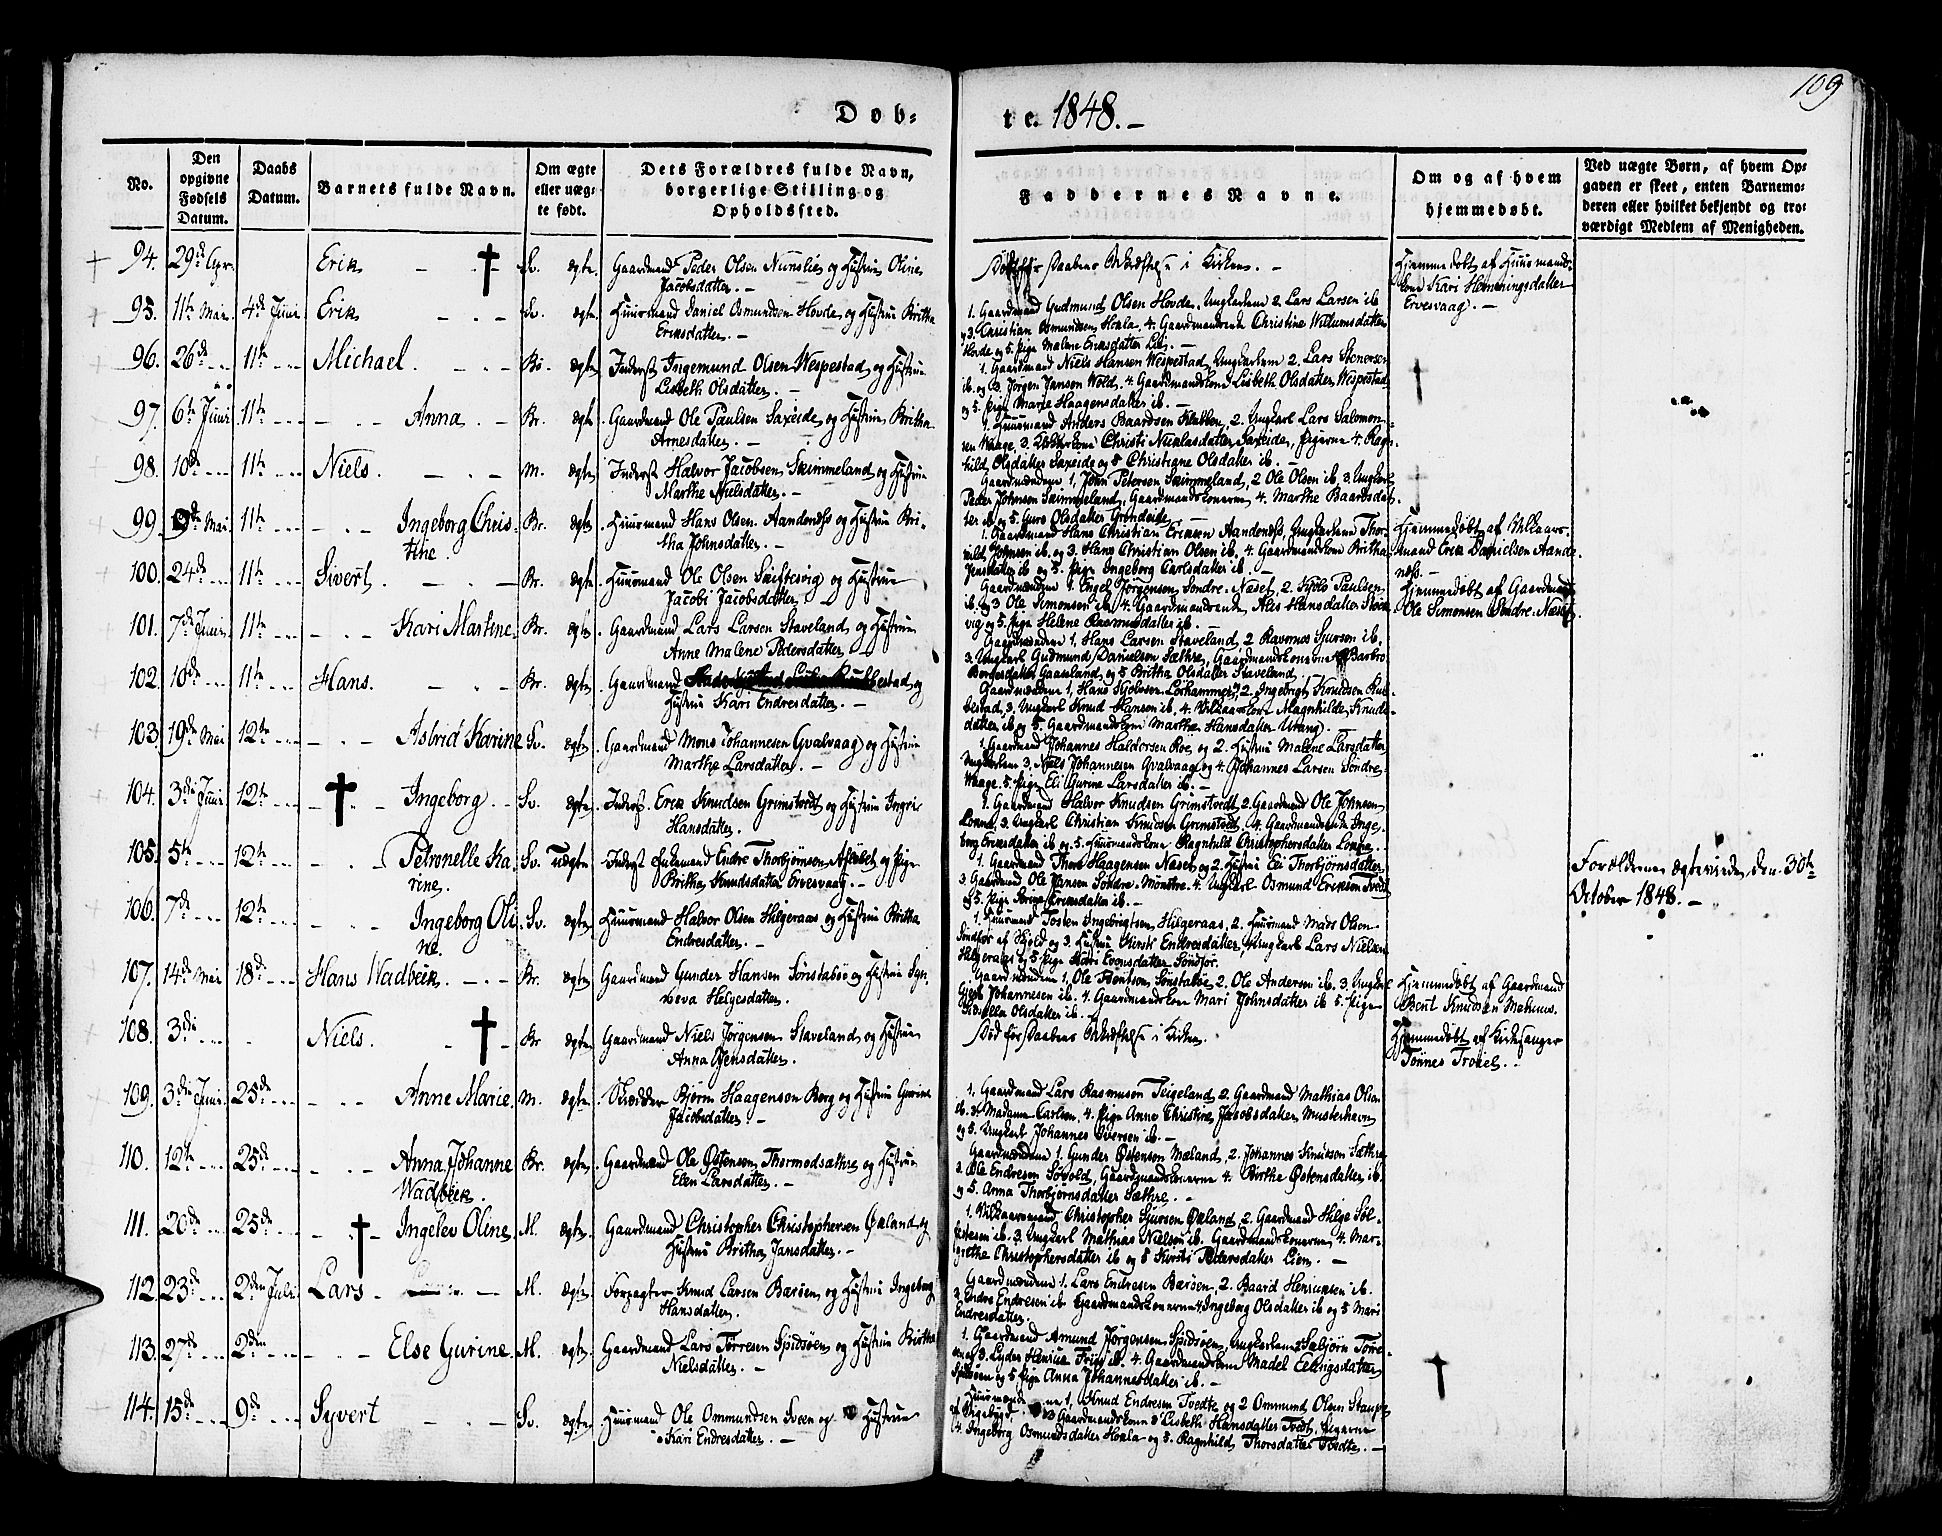 109
Døb-
te. 1848.-
No.
Den opgivne Fødsels Datum.
Daabs Datum.
Barnets fulde Navn.
Om ægte eller uæg-
te født.
Dets Forældres fulde Navn,
borgerlige Stilling og
Opholdssted.
Faddernes Navne.
Om og af hvem
hjemmedøbt.
Ved uægte Børn, af hvem Op-
gaven er skeet, enten Barnemo-
deren eller hvilket bekjendt og tro-
værdigt Medlem af Menigheden.
94. 29de Apr. Erik Sv. ægte. Gaardmand Peder Olsen og Hustrue Oline
Jacobsdatter. -
Død før Daabens Stadfæstelse i Kirken. -
Hjemmedøbt af Huusmands-
kone Kari Henningsdatter
Ervesvaag. -
95. 11te Mai. 4de Juni Erik Sv. ægte. Huusmand Daniel Osmundsen Hovde og Hustrue Britha
Eriksdatter. -
1. Gaardmand Gudmund Olsen Hovde, Ungkarlene 2. Lars Larsen ib
og 3. Christian Osmundsen Hokla, 4. Gaardmandskone Christine Willumsdatter
Hovde og 5. Pige Malene Eriksdatter
96. 26de 11te Michael. Br. ægte Inderst Ingemund Olsen Wespestad og Hustrue
Lisbeth Olsdatter. -
1. Gaardmand Niels Hansen Wespestad, Ungkarlene 2. Lars Stenersen
ib. og 3. Jørgen Jansen Wold, 4. Gaardmandskone Lisbeth Olsdatter Wespestad
og 5. Pige Marie Haagensdatter ib. -
97. 6te Juni 11te Anna Br. ægte. Gaardmand Ole Paulsen Saxeide og Hustrue Britha
Arnesdatter. -
1. Huusmand Anders Baardsen Klubben, 2. Ungkarl Lars Salomon-
sen Waage, 3. Christi Nicolasdatter Saxeide, Pigerne 4. Rag-
hild Olsdatter Saxeide og 5 Christiane Olsdatter ib. -
98. 10de 11te Niels. M. ægte. Inderst Halvor Jacobsen Skimmeland og Hustrue
Marthe Nielsdatter. -
Gaardmændene 1, John Petersen Skimmeland, 2 Ole Olsen ib, 3. Ungkarl
Peder Johnsen Skimmeland, Gaardmandskonerne, 4. Marthe Baardsdat-
ter ib og 5. Guro Olsdatter Grindeide.
99. 9de Mai 11te Ingeborg Chris-
tine. Br. ægte. Huusmand Hans Olsen Aandenæs og Hustrue Bri-
tha Johnsdatter. -
1. Gaardmand Hans Christian Eriksen Aandenæs, Ungkarlene Thor-
vild Johnsen ib. og 3. Hans Christian Olsen ib, 4. Gaardmandskone Britha
Jensdatter ib og 5. Pige Ingeborg Carlsdatter ib. -
Hjemmedøbt af Vilkaars-
mand Erik Danielsen Aande-
næs. -
100. 24de 11te Sivert. Br. ægte. Huusmand Ole Olsen Skiftesvig og Hustrue
Jacobi Jacobsdatter. -
Gaardmændene 1. Engel Jørgensen Søndre-Næset, 2. Paulsen
ib. og 3 Ole Simonsen ib. 4. Gaardmandskone Ales Hansdatter
vig og 5. Pige Helene Rasmusdatter ib. -
Hjemmedøbt af Gaardmand
Ole Simonsen Søndre-Næset.
101. 7de Juni 11te Kari Martine. Br. ægte. Gaardmand Lars Larsen Staveland og Hustrue
Anne Malene Pedersdatter. -
Gaardmændene 1, Hans Larsen Staveland, 2 Rasmus Sjursen ib.
3. Ungkarl Gudmund Danielsen Sæthre, Gaardmandskonerne 4 Barbro
Bordsdatter Gaasland, og 5 Britha Olsdatter Staveland.
102. 10de 11te Hans. Br. ægte. Gaardmand bestad, og
Hustrue Kari Endresdatter. -
Gaardmændene 1, Hans Lørhammer, 2. Ingebrigt Knudsen
bestad, 3. Ungkarl Knud Hansen ib. 4. Vilkaarskone Magnhilde Knuds-
datter ib og 5. Gaardmandskone Marthe Hansdatter
103 19de Mai 12te Astrid Karine Sv. ægte. Gaardmand Mons Johannesen Qvalvaag og Hustrue
Marthe Larsdatter. -
1. Gaardmand Johannes Haldorsen Roe, og 2. Hustrue Malene Larsdatter
Ungkarlene 3. Niels Johannesen Qvalvaag og 4. Johannes Larsen Søndre-
Waage, 5. Pige Eli Gurine Larsdatter ib. -
104. 3die Juni 12te Ingeborg. Sv. ægte. Inderst Erik Knudsen Grimstvedt og Hustrue Ingri
Hansdatter.
1. Gaardmand Halvor Knudsen Grimstvedt, 2. Gaardmand Ole Johnsen
3. Ungkarl Christian Knudsen Grimstvedt, 4. Gaardmandskone Inge-
borg Eriksdatter ib og 5. Huusmandskone Ragnhild Christophersdatter
105. 5te 12te Petronelle Ka-
rine. Sv. Uægte Inderst Enkemand Endre Thorbjørnsen og Pige
Britha Knudsdatter Ervesvaag. -
1. Gaardmand Thore Haagensen Næset og 2. Hustrue Eli Thorbjørnsdatter
3. Gaardmand Ole Jansen Søndre-Mønstre, 4. Ungkarl Osmund Eriksen Tvedt
og 5. Pige Eriksdatter ib. -
Forældrene ægteviede den 30te
October 1848. -
106. 7de 12te Ingeborg Oli-
ne. Sv. ægte. Huusmand Halvor Olsen Hilgeraas og Hustrue Britha
Endresdatter. -
1. Huusmand Tosten Ingebrigtsen Hilgeraas, 2. Huusmand Mads Olsen
Søndfør af Skjold og 3. Hustrue Kirsti Endresdatter, 4. Ungkarl Lars Nielsen
Hilgeraas og 5 Pige Kari Evensdatter Søndfør.
107. 14de Mai 18de Hans Wadbeck. Br. ægte. Gaardmand Gunder Hansen Sørstabøe og Hustrue Syn-
neva Helgesdatter.
Gaardmændene 1, Ole 2. Ole Andersen ib. 3. Ungkarl
Johannesen ib. 4 Gaardmandskone Mari Johnsdatter ib 5. Pige
Olsdatter ib. -
Hjemmedøbt af Gaardmand
Bent Knudsen Mehuus.
108. 3die Niels. Br ægte. Gaardmand Niels Jørgensen Staveland og Hustrue
Anna Jensdatter.
Død før Daabens Stadfæstelse i Kirken.
Hjemmedøbt af Kirkesanger
Tønnes Troiel. -
109. 3die Juni. 25de Anne Marie. M. ægte. Skrædder Bjørn Haagensen Borg og Hustrue Gurine
Jacobsdatter. -
1. Gaardmand Lars Rasmusen Teigeland, 2. Gaardmand Mathias Olsen
ib. 3. Madame Carlsen, 4. Pige Anne Christine Jacobsdatter Musterhavn
og 5. Ungkarl Johannes Iversen ib. -
110. 12te 25de Anna Johanne
Wadbeck. Br. ægte. Gaardmand Ole Østensen Thormodsæthre og Hustrue
Elen Larsdatter. -
Gaardmændene 1. Gunder Østensen Mæland, 2. Johannes Sæthre
3. Ole Endresen Søvold, Gaardmandskonerne 4. Birthe Østensdatter ib.
og 5. Anna Thorbjørnsdatter Sæthre. -
111. 20de 25de Ingelev Oline M. ægte. Gaardmand Christopher Christophersen Økland og
Hustrue Britha Jansdatter. -
1. Vilkaarsmand Christopher Sjursen Økland, 2. Gaardmand Helge Søl-
festesen ib. 3. Ungkarl Mathias Nielsen ib. Gaardmandskonerne, 4. Mar-
grethe Christophersdatter ib og 5 Kirsti Pedersdatter Liem. -
112. 23de 2den Juli Lars M. ægte. Forpagter Knud Larsen Bærøen og Hustrue Ingeborg
Hansdatter. -
Gaardmændene 1. Lars Endresen Bærøen, 2. Baard Henriksen ib.
3. Endre Endresen ib. Gaardmandskonerne 4 Ingeborg Olsdatter ib og 5 Mari
Endresdatter.
113. 27de 2den Else Gurine. M. ægte. Gaardmand Lars Tørresen Spidsøen og Hustrue Britha
Nielsdatter. -
1. Gaardmand Amund Jørgensen Spidsøen, Ungkarlene 2 Sæbjørn Tørre-
sen og 3. Lyder Henrich Friis ib. 4. Gaardmandskone Madel Ellingsdatter
Spidsøen og 5 Pige Anna Johannesdatter ib. -
114. 15de 9de Syvert Sv. ægte. Huusmand Ole Ommundsen Sveen og Hustrue
Kari Endresdatter. -
1. Knud Endresen Tvedte og 2 Ommund Olsen
Gaardmandskone Lisbeth Hansdatter Tvedt, Pigerne
4. Ingeborg Osmundsdatter Hokla og 5. Ragnhild Thorsdatter Tvedte. -